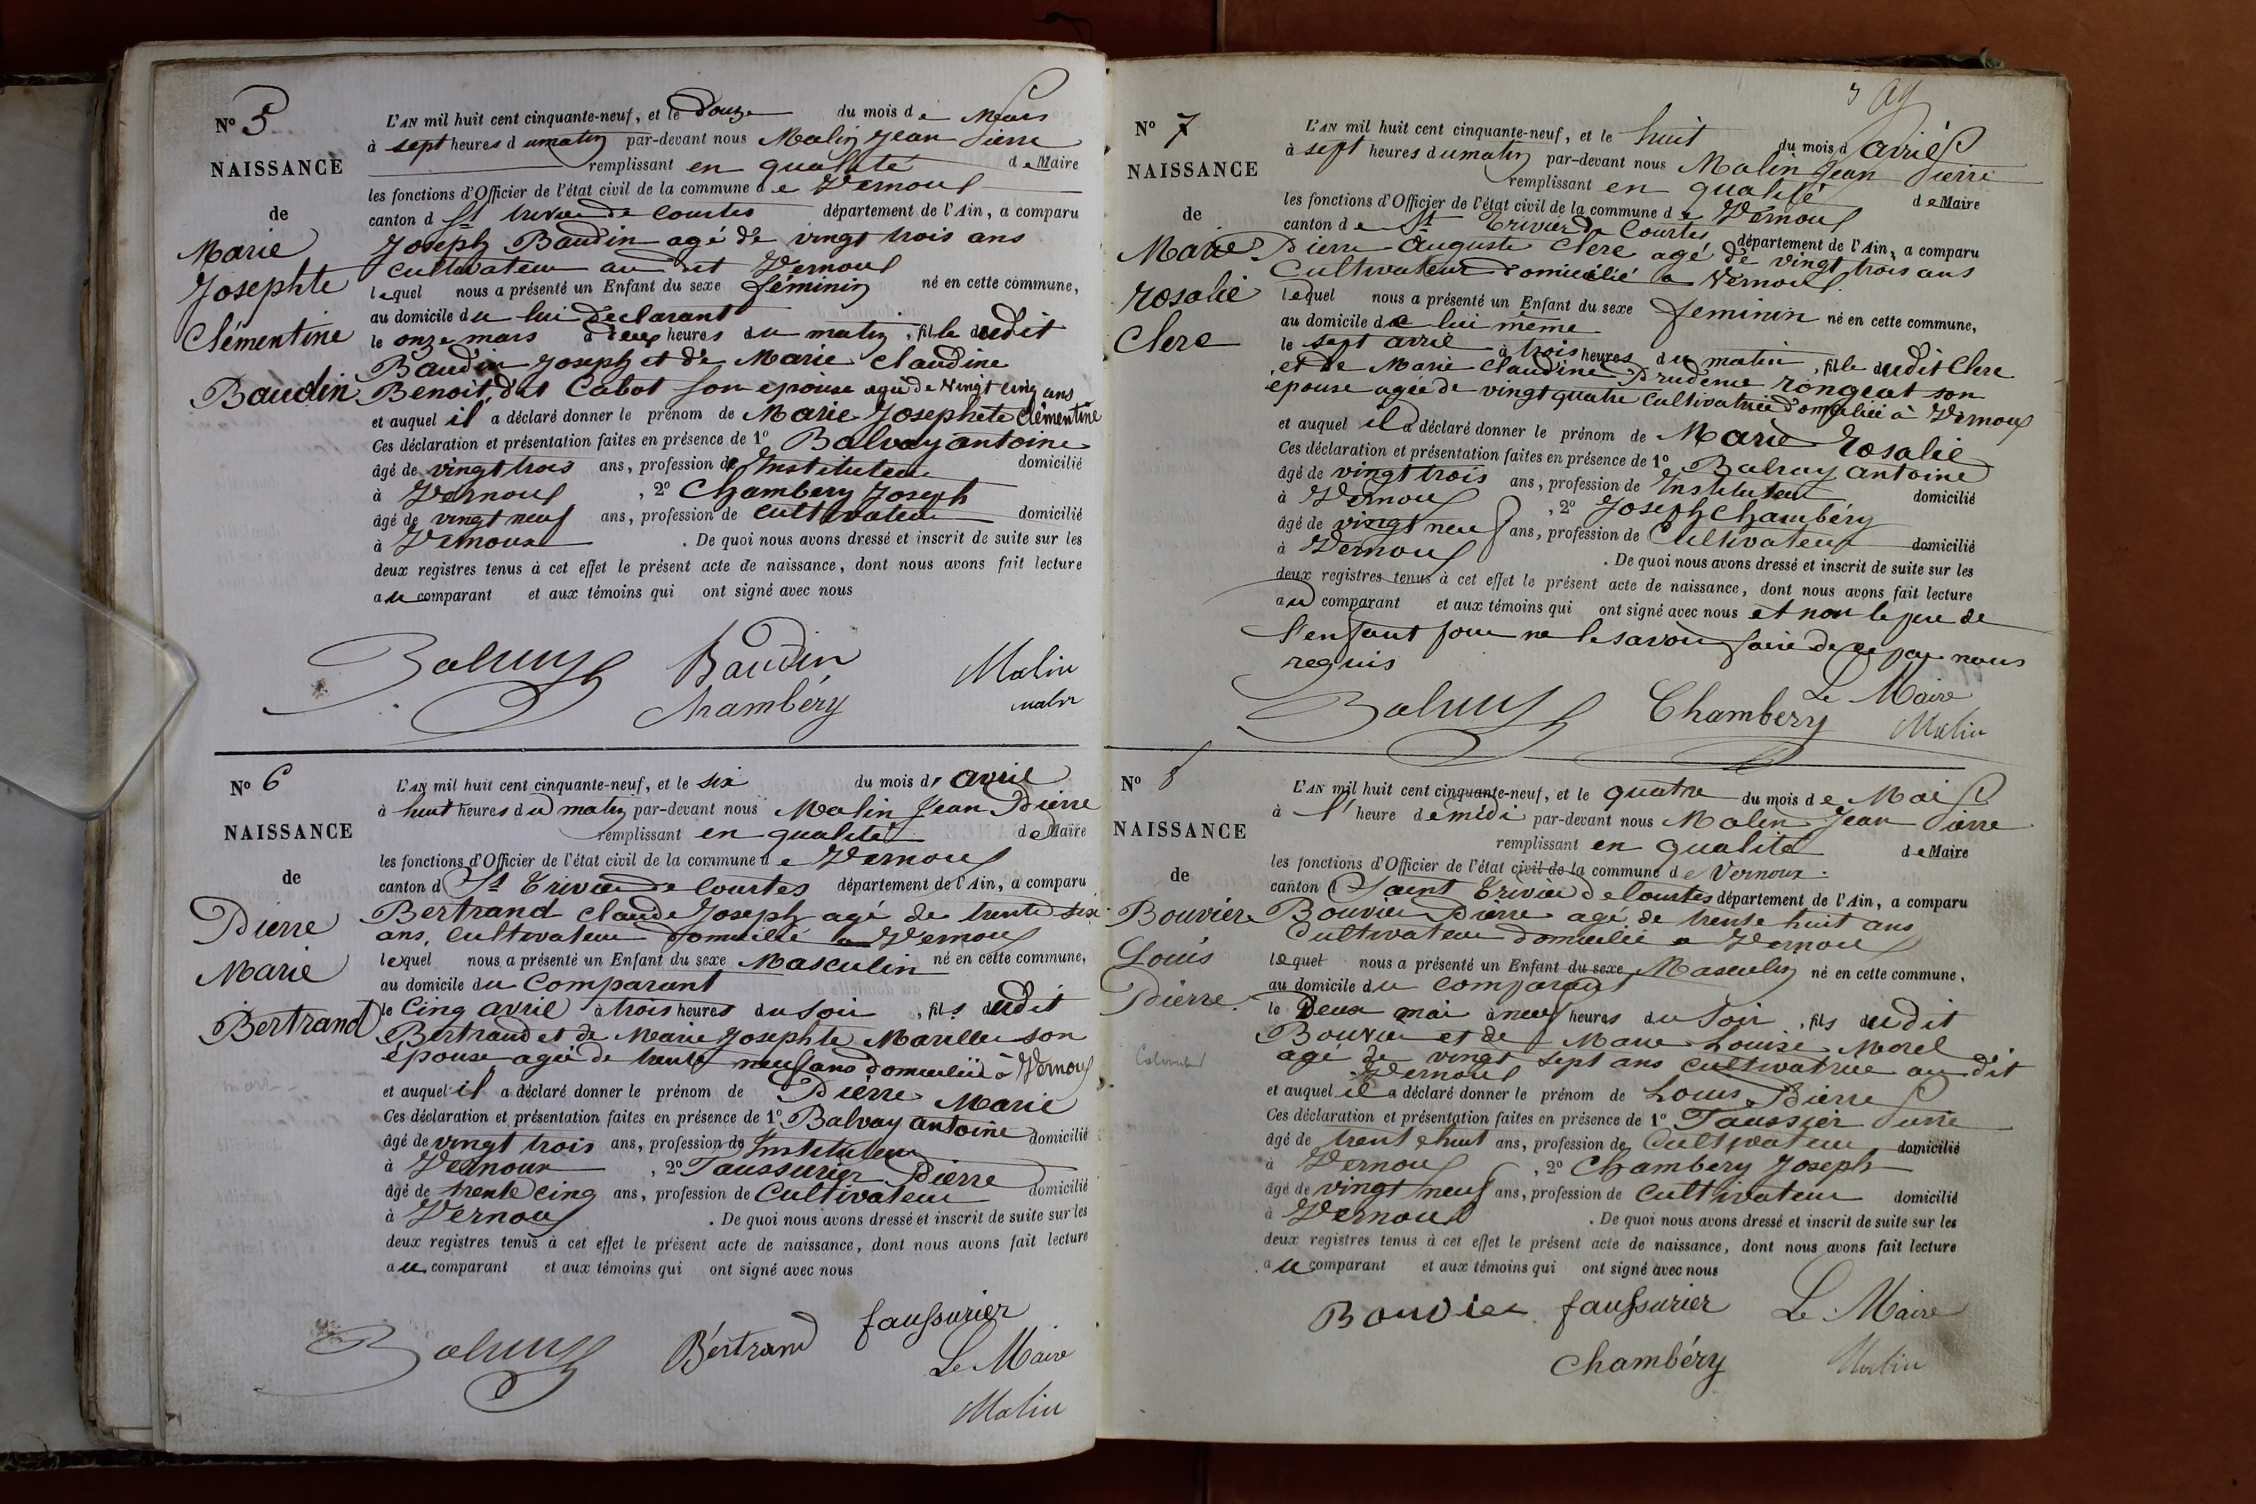 N° 5
NAISSANCE
de
Marie
Josephte
Clémentine
Baudin
L'AN mil huit cent cinquante-neuf, et le douze du mois de Mars
à sept heures du matin par-devant nous Malin Jean Pierre
remplissant en qualité de Maire
les fonctions d'Officier de l'état civil de la commune de Vernoux
canton d St trivier de Courtes département de l'Ain, a comparu
Joseph Baudin agé de vingt trois ans
Cultivateur au dit Vernoux
lequel nous a présenté un Enfant du sexe féminin né en cette commune,
au domicile du lui déclarant
le onze mars à deux heures du matin, fille dudit
Baudin Joseph et de Marie Claudine
Benoit dit Cabot son epouse agée de vingt cinq ans
et auquel il a déclaré donner le prénom de Marie Josephete Clémentine
Ces déclaration et présentation faites en présence de 1° Balvay antoine
âgé de vingt trois ans, profession de Instituteur domicilié
à Vernoux, 2° Chambery Joseph
âgé de vingt neuf ans, profession de cultivateur domicilié
à Vernoux. De quoi nous avons dressé et inscrit de suite sur les
deux registres tenus à cet effet le présent acte de naissance, dont nous avons fait lecture
au comparant et aux témoins qui ont signé avec nous
Balvay Baudin Malin
Chambéry malin
N° 6
NAISSANCE
de
Pierre
Marie
Bertrand
L'AN mil huit cent cinquante-neuf, et le six du mois d' avril
à huit heures du matin par-devant nous Malin Jean Pierre
remplissant en qualité de Maire
les fonctions d'Officier de l'état civil de la commune de Vernoux
canton d St Trivier de Courtes département de l'Ain, a comparu
Bertrand Claude Joseph agé de trente six
ans, Cultivateur domicilié a Vernoux
lequel nous a présenté un Enfant du sexe Masculin né en cette commune,
au domicile du Comparant
le Cinq avril à trois heures du soir, fils dudit
Bertrand et de Marie Josephte Marillier son
épouse agée de trente neuf ans domiciliée à Vernoux
et auquel il a déclaré donner le prénom de Pierre Marie
Ces déclaration et présentation faites en présence de 1° Balvay antoine
âgé de vingt trois ans, profession de Instituteur domicilié
à Vernoux, 2° Faussurier Pierre
âgé de trente cinq ans, profession de Cultivateur domicilié
à Vernoux. De quoi nous avons dressé et inscrit de suite sur les
deux registres tenus à cet effet le présent acte de naissance, dont nous avons fait lecture
au comparant et aux témoins qui ont signé avec nous
Balvay Bertrand faussurier
Le Maire
Malin
N° 7
NAISSANCE
de
Marie
rosalie
Clere
L'AN mil huit cent cinquante-neuf, et le huit du mois d avril
à sept heures du matin par-devant nous Malin Jean Pierre
remplissant en qualité de Maire
les fonctions d'Officier de l'état civil de la commune de Vernoux
canton de St Trivier de Courtes, département de l'Ain, a comparu
Pierre Auguste Clere agé de vingt trois ans
Cultivateur domicilié a Vernoux
lequel nous a présenté un Enfant du sexe feminin né en cette commune,
au domicile de lui même
le sept avril à trois heures du matin, fille dudit Clere
et de Marie Claudine Prudence rongeat son
épouse agée de vingt quatre Cultivatrice domiciliée à Vernoux
et auquel il a déclaré donner le prénom de Marie rosalie
Ces déclaration et présentation faites en présence de 1° Balvay Antoine
âgé de vingt trois ans, profession de Instituteur domicilié
à Vernoux, 2° Joseph Chambéry
âgé de vingt neuf ans, profession de Cultivateur domicilié
à Vernoux. De quoi nous avons dressé et inscrit de suite sur les
deux registres tenus à cet effet le présent acte de naissance, dont nous avons fait lecture
au comparant et aux témoins qui ont signé avec nous et non le père de
l'enfant pour ne le savoir faire de ce par nous
requis
Balvay Chambery Le Maire
Malin
N° 8
NAISSANCE
de
Bouvier
Louis
Pierre
L'AN mil huit cent cinquante-neuf, et le quatre du mois de Mai
à l'heure de midi par-devant nous Malin Jean Pierre
remplissant en qualité de Maire
les fonctions d'Officier de l'état civil de la commune de Vernoux.
canton d Saint Trivier de Courtes département de l'Ain, a comparu
Bouvier Pierre agé de trente huit ans
Cultivateur domicilié a Vernoux
lequel nous a présenté un Enfant du sexe Masculin né en cette commune,
au domicile du comparant
le Deux mai à neuf heures du soir, fils dudit
Bouvier et de Marie Louise Morel
agé de vingt sept ans cultivatrice au dit
Vernoux
et auquel il a déclaré donner le prénom de Louis Pierre
Ces déclaration et présentation faites en présence de 1° Faussier Pierre
âgé de trente huit ans, profession de Cultivateur domicilié
à Vernoux, 2° Chambery Joseph
âgé de vingt neuf ans, profession de cultivateur domicilié
à Vernoux. De quoi nous avons dressé et inscrit de suite sur les
deux registres tenus à cet effet le présent acte de naissance, dont nous avons fait lecture
au comparant et aux témoins qui ont signé avec nous
Bouvier faussurier Le Maire
Chambéry Malin